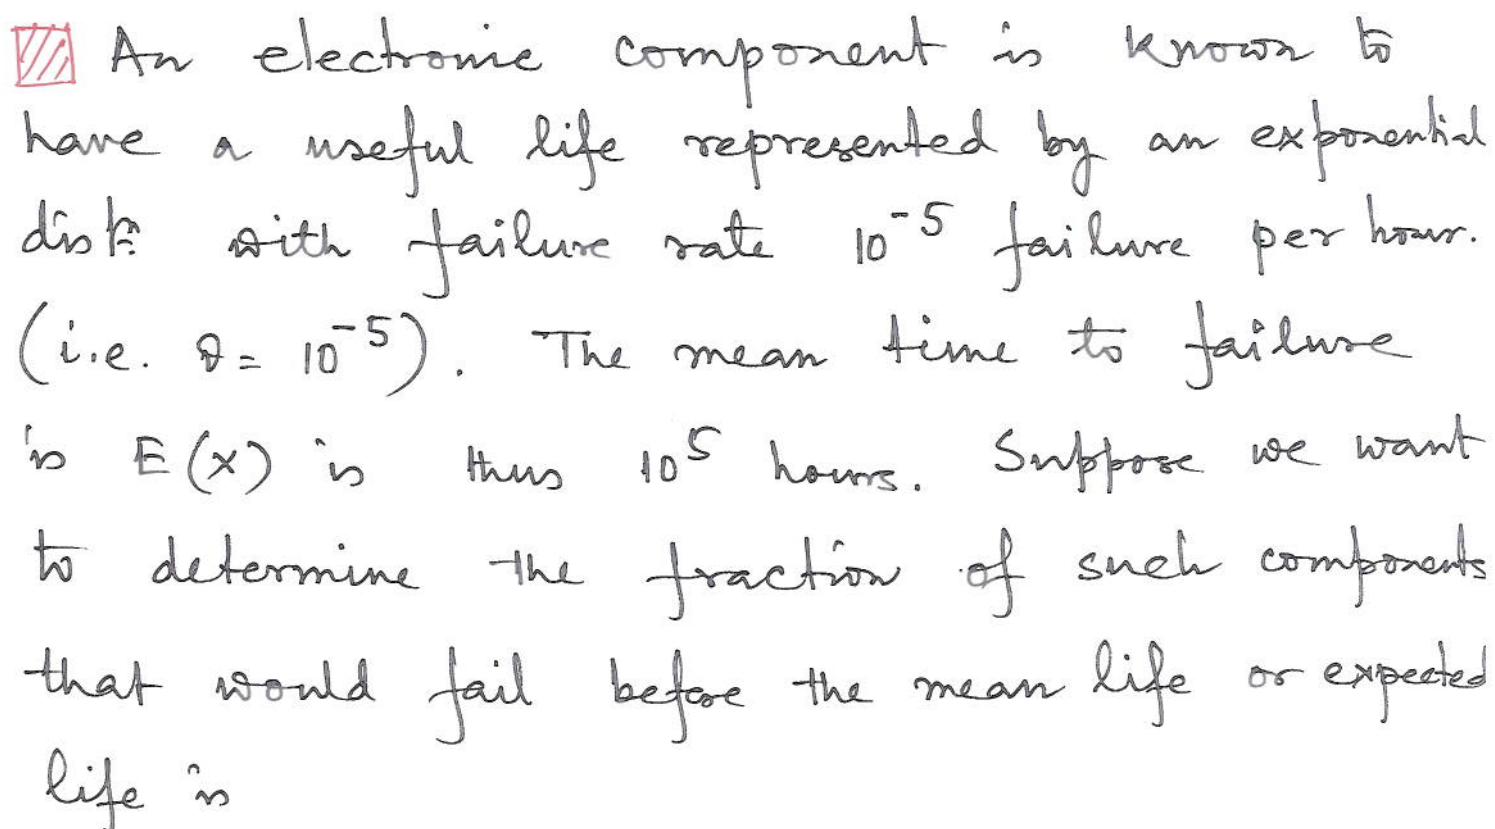 An electronic component is known to
have a useful life represented by an exponential
distⁿ with failure rate 10⁻⁵ failure per hour.
(i.e. θ = 10⁻⁵). The mean time to failure
is E(x) is thus 10⁵ hours. Suppose we want
to determine the fraction of such components
that would fail before the mean life or expected
life is